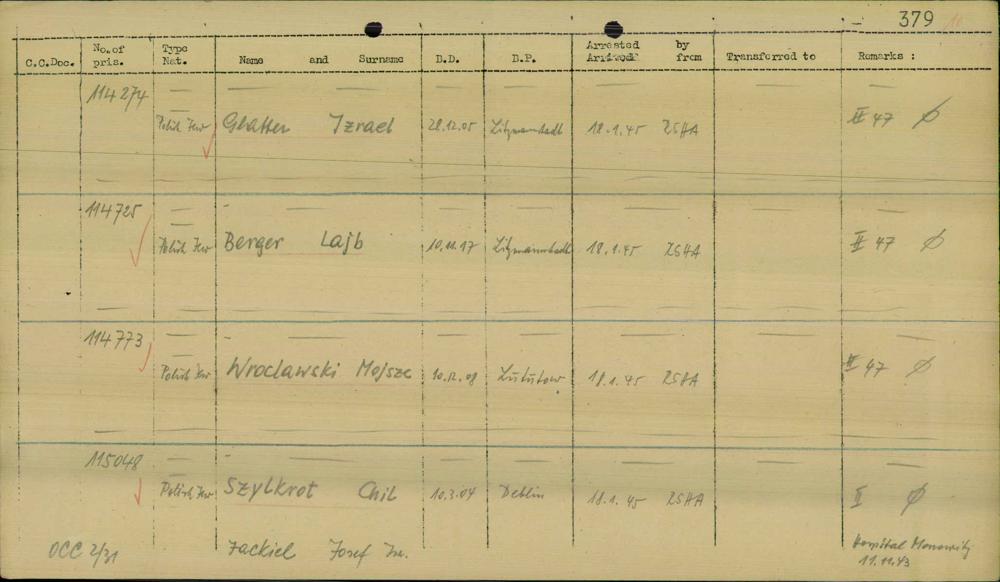 379
C.C.Doc. No. of pris. Type Nat. Name and Surname B.D. B.P. Arrested Arrived by from Transferred to Remarks :
114274
Polish Jew Glatter Izrael 28.12.05 Litzmannstadt 18.1.45 RSHA II 47 Ø
114725
Polish Jew Berger Lajb 10.11.17 Litzmannstadt 18.1.45 RSHA II 47 Ø
114773
Polish Jew Wroclawski Mojsze 10.12.08 Lututow 18.1.45 RSHA II 47 Ø
115048
Polish Jew Szylkrot Chil 10.3.04 Deblin 18.1.45 RSHA II Ø
OCC 2/31 Jackiel Josef Isr. Hospital Monowitz
11.11.43